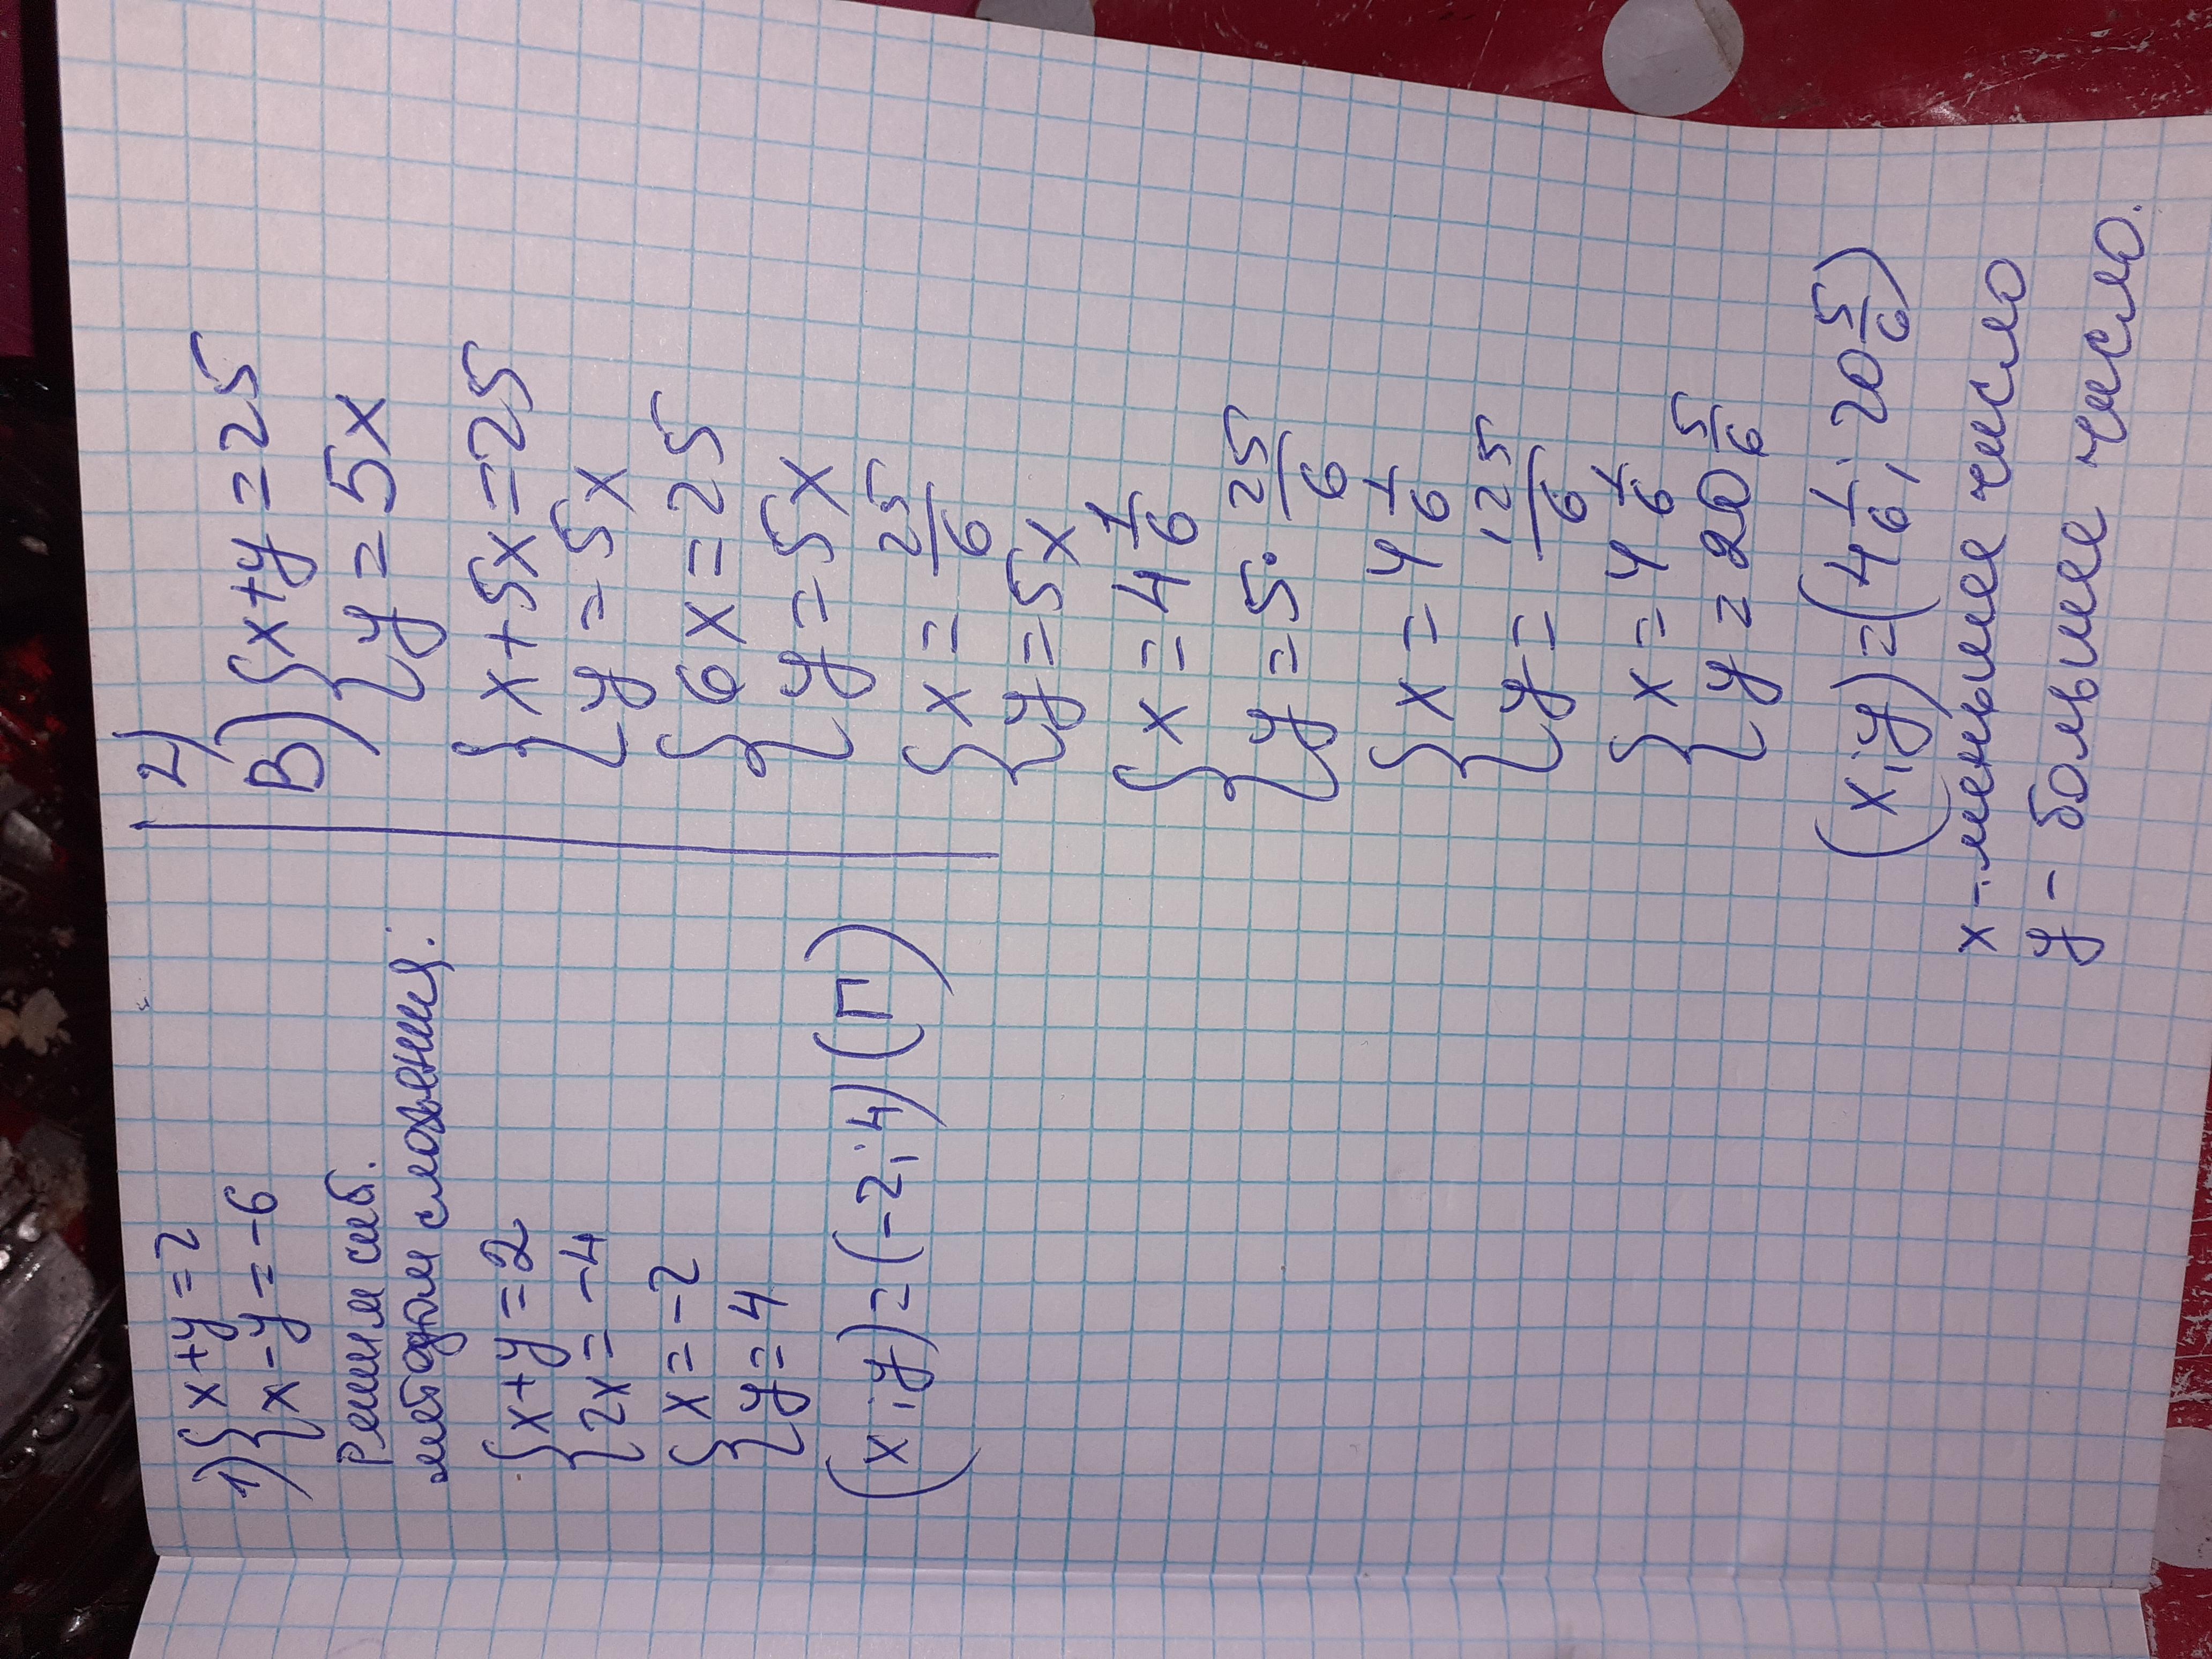 1) {x+y=2
{x-y=-6
Решим сист.
методом сложения:
{x+y=2
{2x=-4
{x=-2
{y=4
(x;y)=(-2;4) (П)
2)
В) {x+y=25
{y=5x
{x+5x=25
{y=5x
{6x=25
{y=5x
{x=25/6
{y=5x
{x=4 1/6
{y=5·25/6
{x=4 1/6
{y=125/6
{x=4 1/6
{y=20 5/6
(x;y)=(4 1/6; 20 5/6)
x-меньшее число
y-большее число.